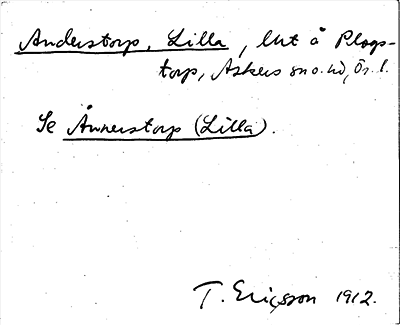 Anderstorp, Lilla, lht å Plogs-
torp, Askers sn o. hd, Ör. l.
Se Ånnerstorp (Lilla).
T. Ericsson 1912.